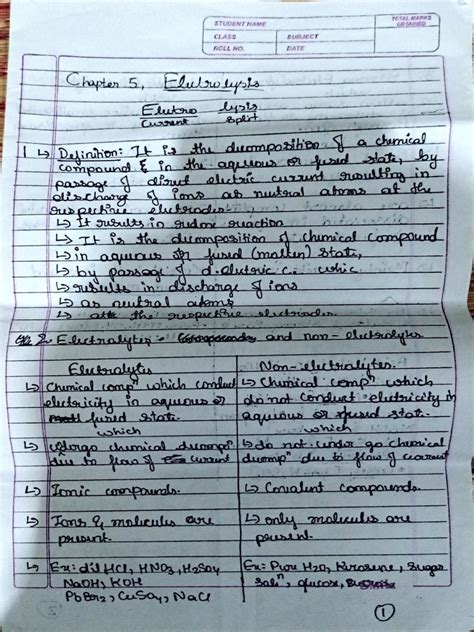 STUDENT NAME
TOTAL MARKS OBTAINED
CLASS SUBJECT
ROLL NO. DATE
Chapter 5, Elutrolysis
Elutro lysis
Current split
1 ↳ Definition: It is the ducomposition of a chemical
compound & in the aqueous or fused state, by
passage of direct electric current resulting in
discharge of ions as nutral atoms at the
respective elutrodes
↳ It rusults in redox reaction
↳ It is the ducomposition of chemical compound
↳ in aqueous or fused (molten) state,
↳ by passage of d.elutric c.
↳ results in discharge of ions
↳ as nutral atoms
↳ at the respective
2. Electralytes and non-electralytes
Electralytes
Non-electralytes.
↳ Chemical compⁿ which conduct
electricity in aqueous or
fused state.
which
↳ Chemical compⁿ which
do not conduct electricity in
aqueous or fused stat.
which
↳ undergo chemical ducompⁿ
due to flow of current
↳ do not under go chemical
ducompⁿ due to flow of current
↳ Ionic compounds.
↳ Covalent compounds.
↳ Ions & molicules are
present.
↳ only molicules are
present.
↳ Ex: dil HCl, HNO3, H2SO4
NaOH, KOH
PbBr2, CuSO4, NaCl
Ex: Pure H2O, Kerosene, Sugar
Solⁿ, glucose,
1